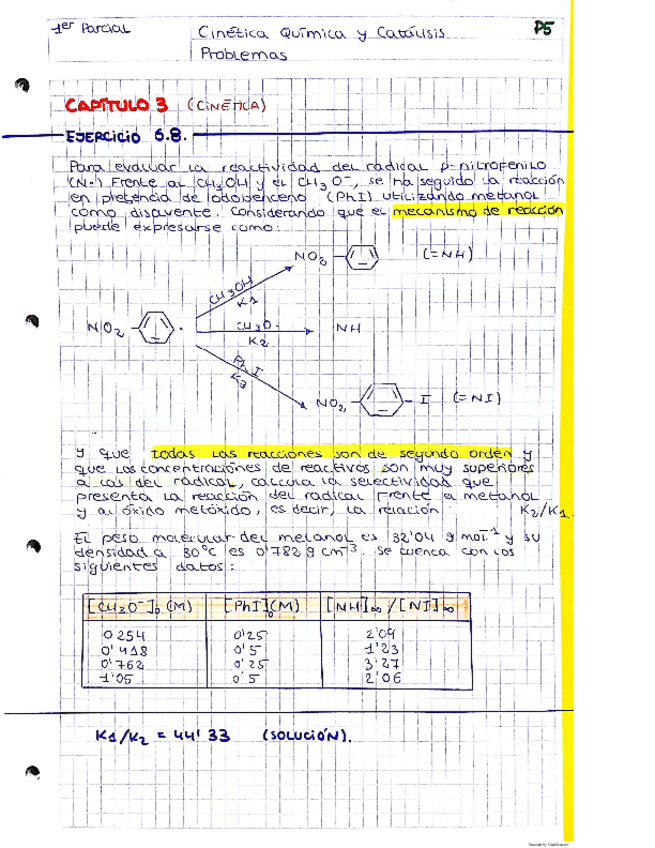 1er Parcial
Cinética Química y Catálisis
P5
Problemas
CAPÍTULO 3 (CINÉTICA)
EJERCICIO 6.8.
Para evaluar la reactividad del radical p-nitrofenilo
(N·) Frente al CH3OH y el CH3O-, se ha seguido la reacción
en presencia de Iodobenceno (PhI) utilizando metanol
como disolvente. Considerando que el mecanismo de reacción
puede expresarse como:
NO2 (=NH)
CH3OH
K1
NO2 ·
CH3O-
K2
NH
PhI
K3
NO2 I (=NI)
y que todas las reacciones son de segundo orden y
que las concentraciones de reactivos son muy superiores
a las del radical, calcula la selectividad que
presenta la reacción del radical Frente a metanol
y al óxido metóxido, es decir, la relación: K2/K1.
El peso molecular del metanol es 32'04 g mol-1 y su
densidad a 30°C es 0'782 g cm-3. Se cuenta con los
siguientes datos:
[CH3O-]0 (M) [PhI]0(M) [NH]∞/[NI]∞
0'254 0'25 2'09
0'418 0'5 1'23
0'762 0'25 3'27
1'05 0'5 2'06
K1/K2 = 44'33 (SOLUCIÓN).
Scanned by CamScanner